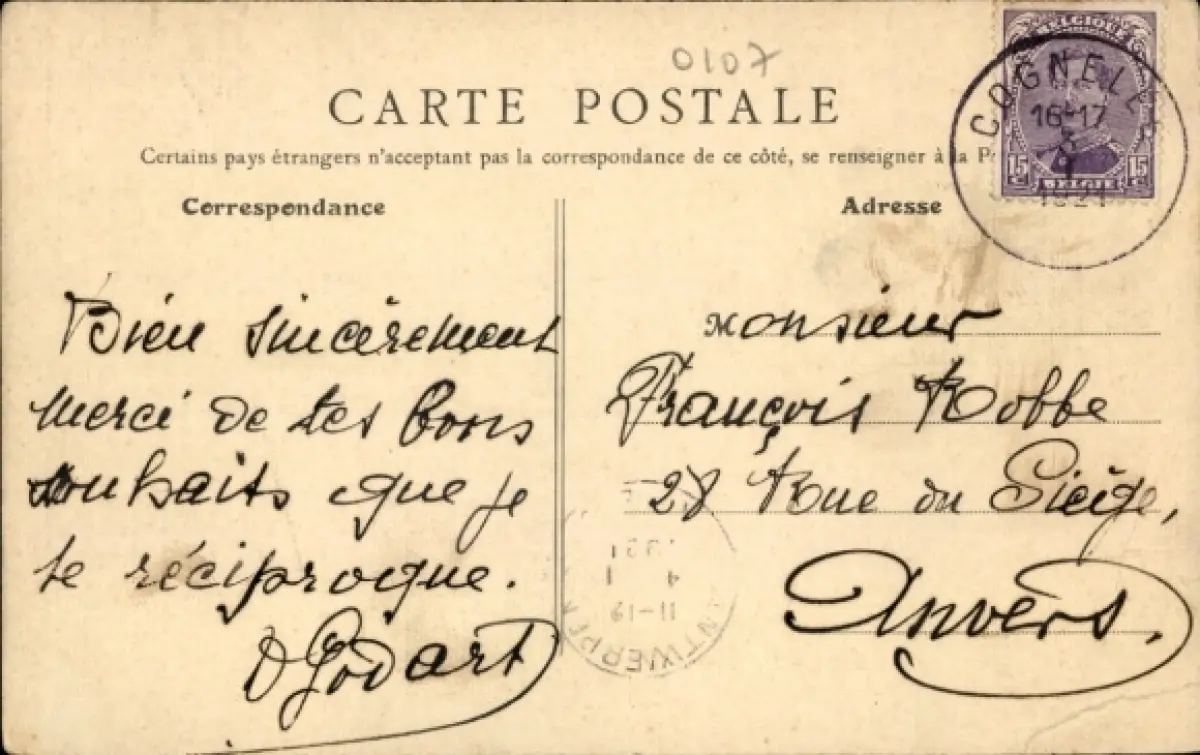 0107
BELGIQUE
COGNELÉE
16-17
3
1
1921
15 15
BELGIË
CARTE POSTALE
Certains pays étrangers n'acceptant pas la correspondance de ce côté, se renseigner à la
Correspondance
Adresse
Bien sincèrement
merci de tes bons
souhaits que je
te réciproque.
D Godart
Monsieur
François Robbe
28 Rue du Siège,
Anvers.
1921
4 1
11-12
ANTWERPEN